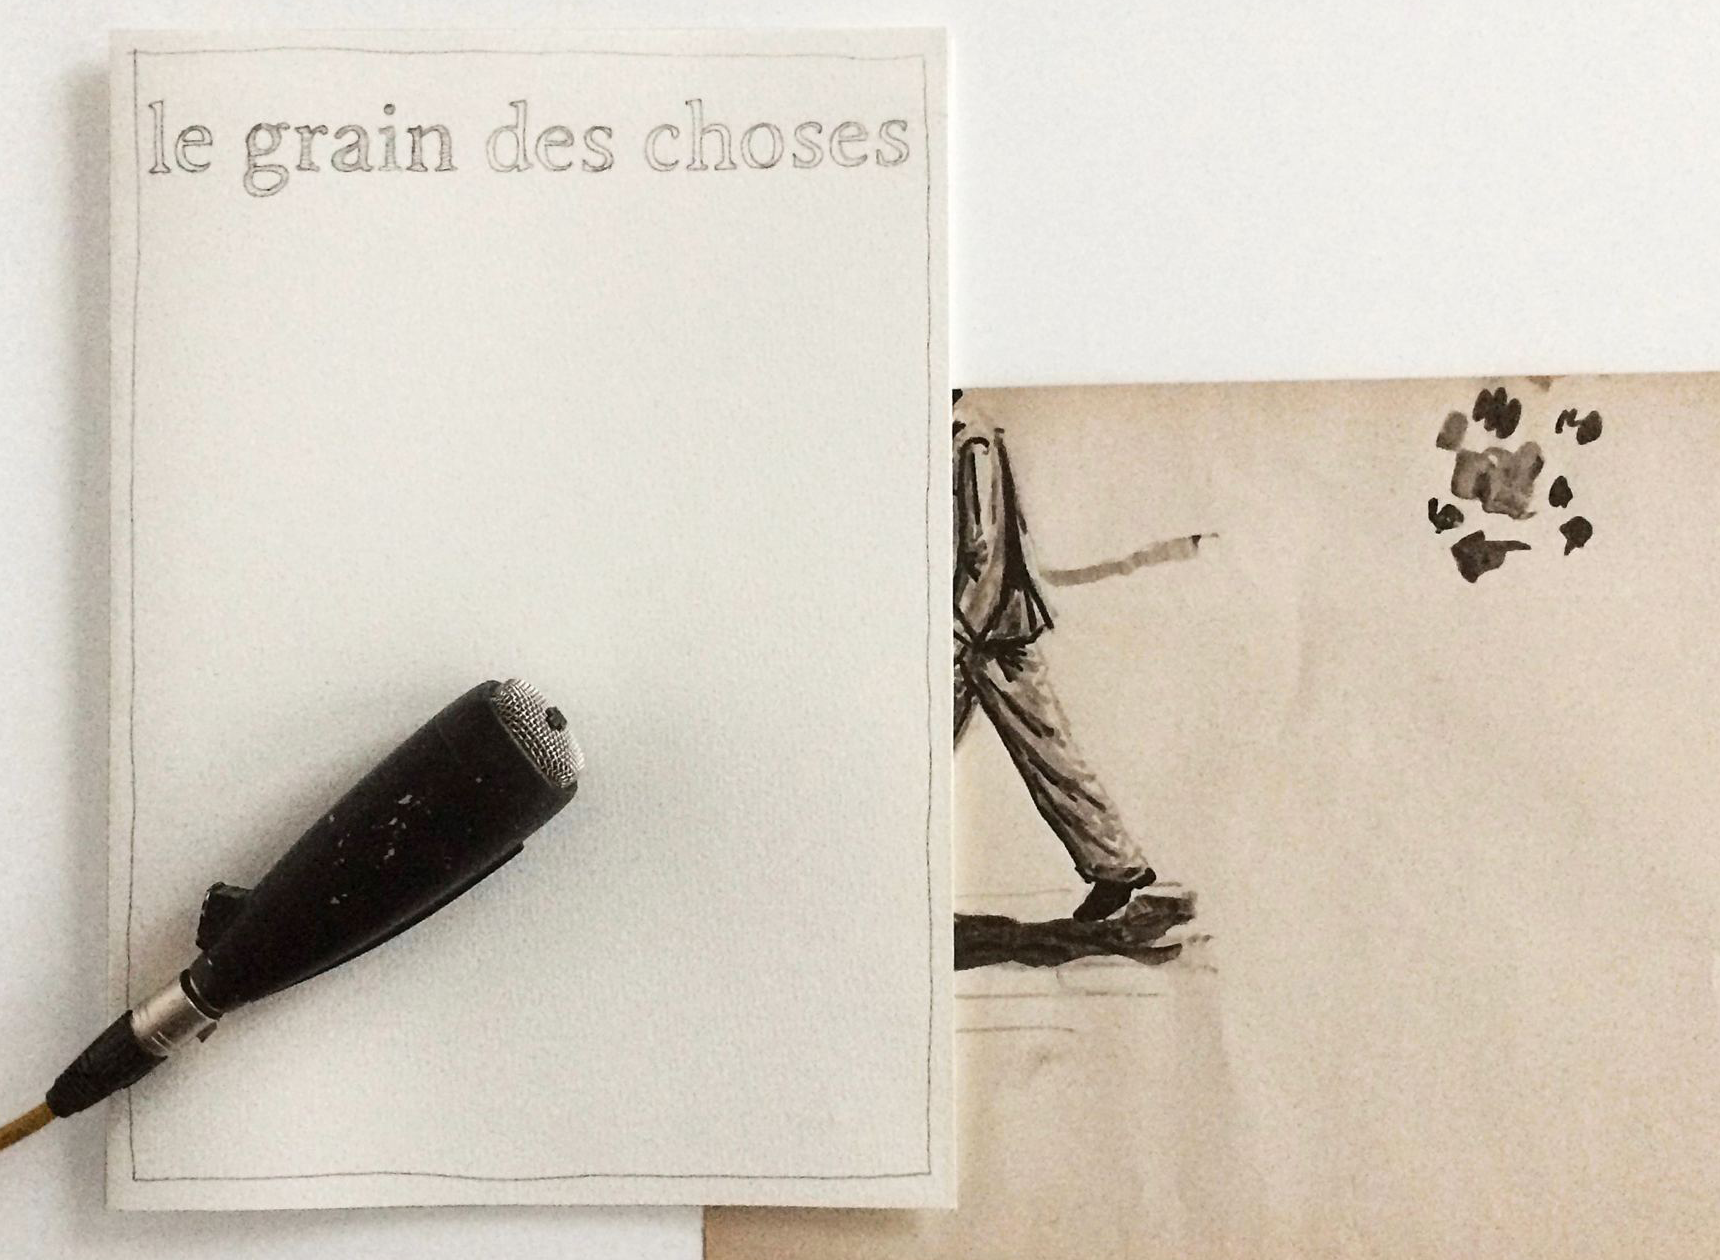 le grain des choses